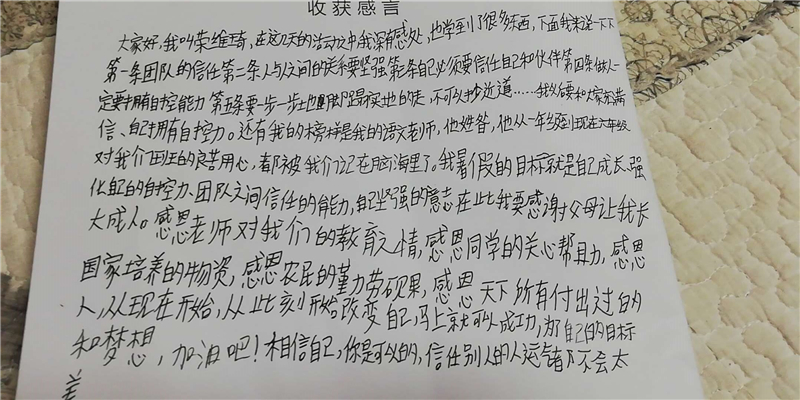 收获感言
大家好,我叫荣维琦,在这几天的活动之中我深有感处,也学到了很多东西,下面我来说一下下
第一条团队的信任第二条人与人之间的关系要坚强第三条自己必须要信任自己和伙伴第四条做人一
定要拥有自控能力 第五条要一步一步土也脚踏实地的走,不可以抄近道……我以后要和大家充满
信、自己拥有自控力。还有我的榜样是我的语文老师,他姓昝,他从一年级到现在六年级
对我们班的良苦用心,都被我们记在脑海里了。我暑假的目标就是自己成长、强
化自己的自控力、团队之间信任的能力,自己坚强的意志在此我要感谢父母让我长
大成人。感恩老师对我们的教育之情,感恩同学的关心帮助,感恩
国家培养的物资,感恩农民的勤力劳硕果,感恩天下所有付出过的
人,从现在开始,从此刻开始改变自己,马上就可以成功,为了自己的目标
和梦想,加油吧!相信自己,你是可以的,信任别人的人运气都不会太
差